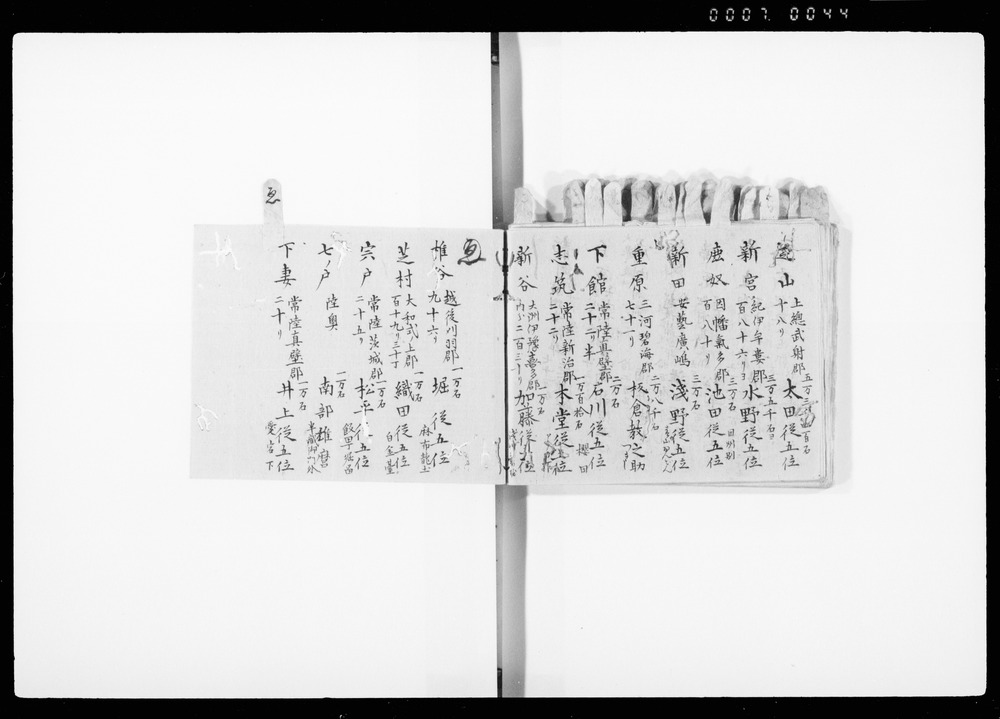 0007 0044
山 上總武射郡
十八リ
太田従五位
新宮 紀伊牟婁郡 三万五千石ヨ
百八十六リヨ
水野従五位
鹿奴 因幡氣多郡 三万石
百八十リ
池田従五位 因州別
新田 安藝廣嶋 三万石
淺野従五位
重原 三河碧海郡 二万八千石
七十一リ
板倉教之助
下館 常陸真壁郡 二万石
二十二リ半
石川従五位 櫻田
志筑 常陸新治郡 一万百拾石
二十二リ
本堂従五位
新谷 大洲伊豫喜多郡 一万石
内分二百三十リ
加藤従五位
ゑ
椎谷 越後刈羽郡 一万石
九十六リ
堀 従五位 麻布龍土
芝村 大和式上郡 一万石
百十九リ三十丁
織田従五位 白金臺
宍戸 常陸茨城郡 一万石
二十五リ
松平従五位 飯田堀留
七ノ戸 陸奥 一万石
南部雄麿
下妻 常陸真壁郡 一万石
二十リ
井上従五位 愛宕下
ゑ